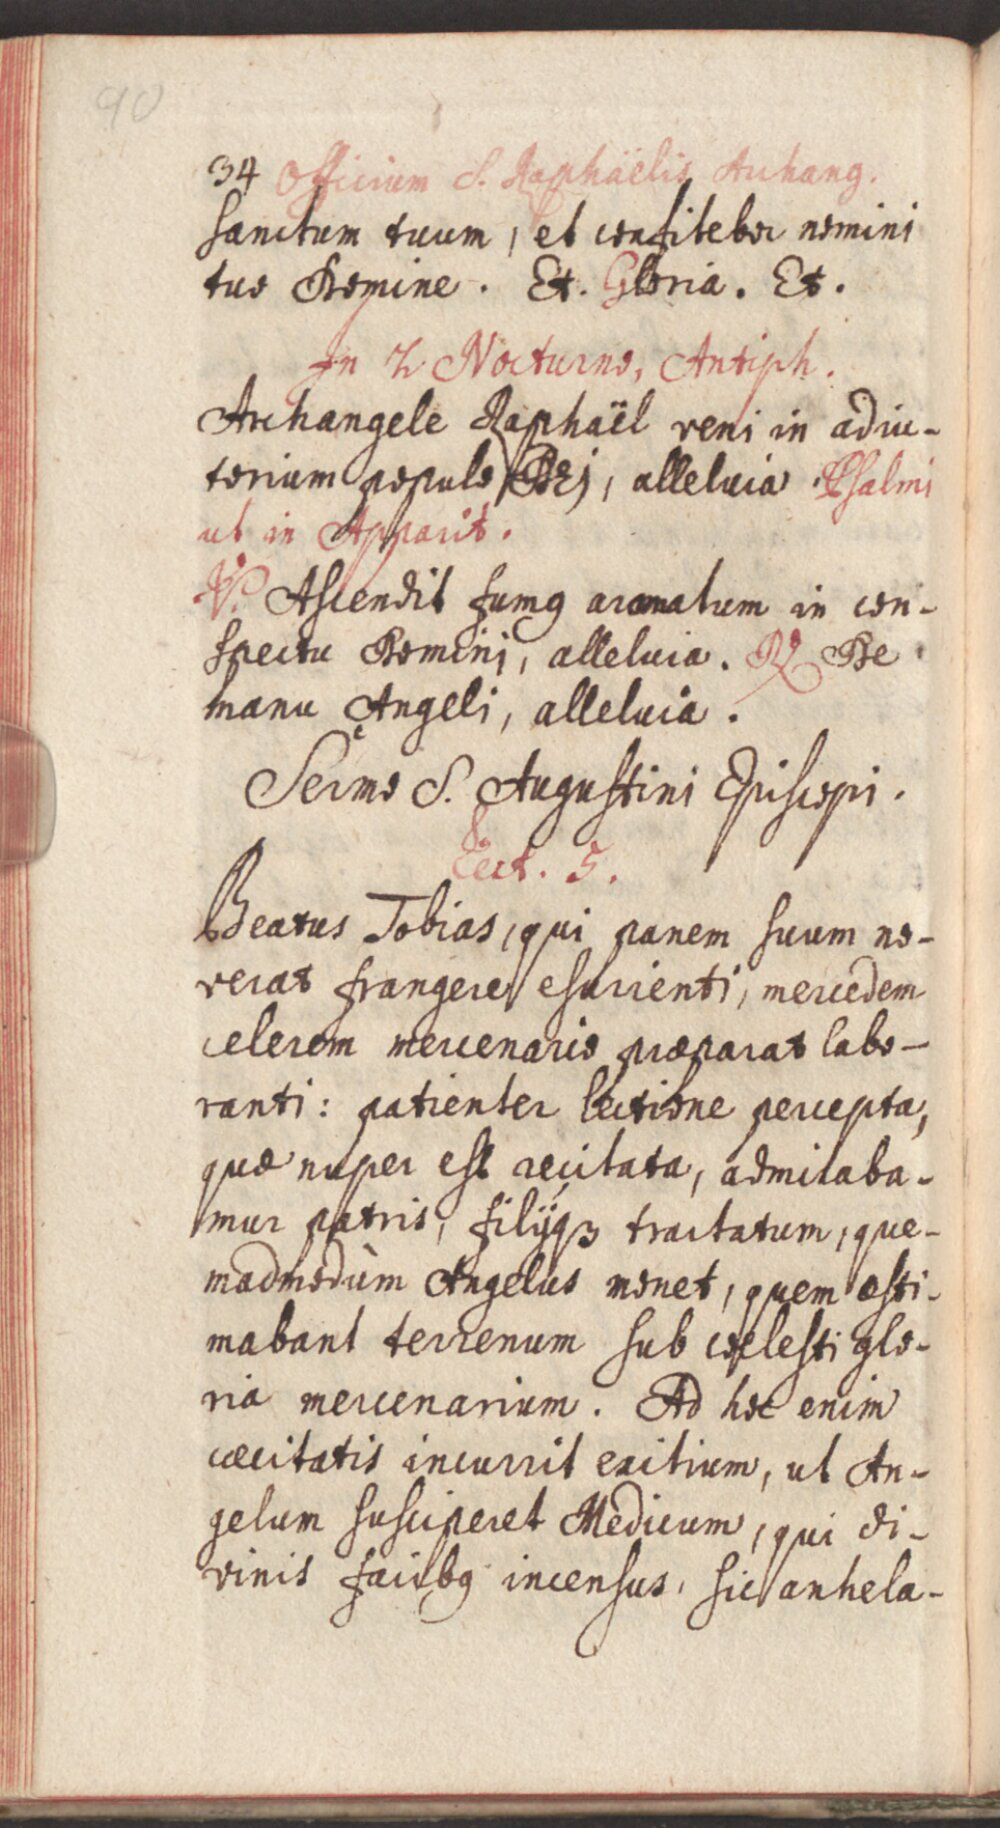 90
34 Officium S. Raphaëlis Archang.
sanctum tuum, et confitebor nomini
tuo Domine. Et. Gloria. Et.
In 2 Nocturno, Antiph.
Archangele Raphaël veni in adiu-
torium populo DEj, alleluia. Psalmi
ut in Apparit.
V. Ascendit fumꝰ aromatum in con-
spectu Domini, alleluia. R De
manu Angeli, alleluia.
Sermo S. Augustini Episcopi.
Lect. 5.
Beatus Tobias, qui panem suum no-
verat frangere esurienti, mercedem
celerem mercenario præparat labo-
ranti: patienter lectione percepta,
quæ nuper est recitata, admiraba-
mur patris, filijqꝫ tractatum, que-
madmodùm Angelus monet, quem æsti-
mabant terrenum sub cœlesti glo-
ria mercenarium. Ad hoc enim
cæcitatis incurrit exitium, ut An-
gelum susciperet Medicum, qui di-
vinis facibꝰ incensus, sic anhela-